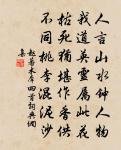 人言山水钟人物
我道英灵属此花
枯死猶堪作香供
不同桃李混泥沙
趙蕃木犀四首詞典網
集